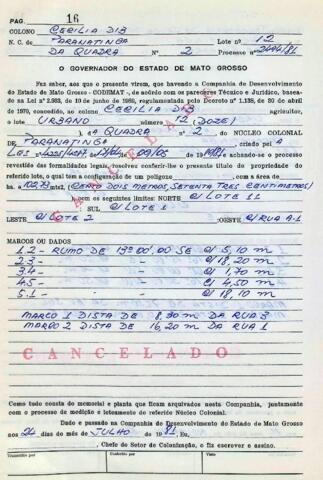 PAG. 16
COLONO CECILIA DIB
N. C. de PARANATINGA Lote nº 12
DA QUADRA Nº 2 Processo nº 2494/81
O GOVERNADOR DO ESTADO DE MATO GROSSO
Faz saber, aos que o presente virem, que havendo a Companhia de Desenvolvimento
do Estado de Mato Grosso - CODEMAT -, de acôrdo com os pareceres Técnico e Jurídico, basea-
da na Lei nº 2.983, de 10 de junho de 1969, regulamentada pelo Decreto nº 1.138, de 20 de abril
de 1970, concedido, ao colono CECILIA DIB agricultor,
o lote URBANO número 12 (DOZE)
), da QUADRA Nº 2, do NÚCLEO COLONIAL
DE PARANATINGA, criado pel A
Lei de 29/05 de 1981 achando-se o processo
revestido das formalidades legais, resolveu conferir-lhe o presente título de propriedade do
referido lote, o qual tem a configuração de um polígono com a área de
ha. 102,73 mts2, (CENTO DOIS METROS, SETENTA TRES CENTIMETROS)
), com os seguintes limites: NORTE C/ LOTE 11
: SUL C/ LOTE 1
LESTE C/ LOTE 2 :OESTE C/ RUA A-1
MARCOS OU DADOS
1.2 - RUMO DE 13º00'00 SE C/ 5,10 m
2.3 - C/ 18,20 m
3.4 - C/ 1,70 m
4.5 - C/ 4,50 m
5.1 - C/ 18,10 m
MARCO 1 DISTA DE 8,90 m DA RUA 3
MARCO 2 DISTA DE 16,20 m DA RUA 1
CANCELADO
CANCELADO
Como tudo consta do memorial e planta que ficam arquivados nesta Companhia, juntamente
com o processo de medição e loteamento do referido Núcleo Colonial.
Dado e passado na Companhia do Desenvolvimento do Estado de Mato Grosso
aos 24 dias do mês de JULHO de 1981, Eu,
, Chefe do Setor de Colonização, o fiz escrever e assino.
Transcrito por Conferido por Visto